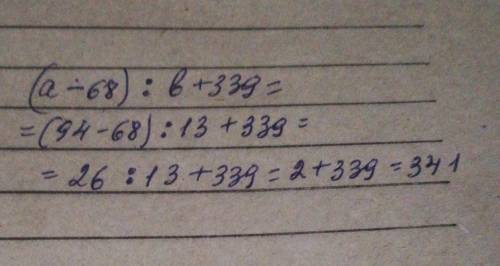 (a-68) : b+339=
=(94-68) : 13+339=
= 26 : 13+339=2+339=341